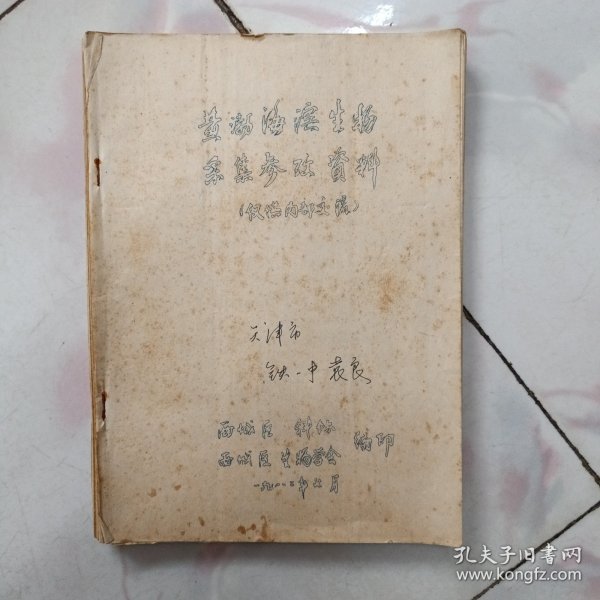 黄渤海滨生物
采集参改资料
(仅供内部交流)
天津市
铁一中 袁良
西城区 科协
西城区 生物学会
编印
一九八二年七月
孔夫子旧书网
www.kongfz.com